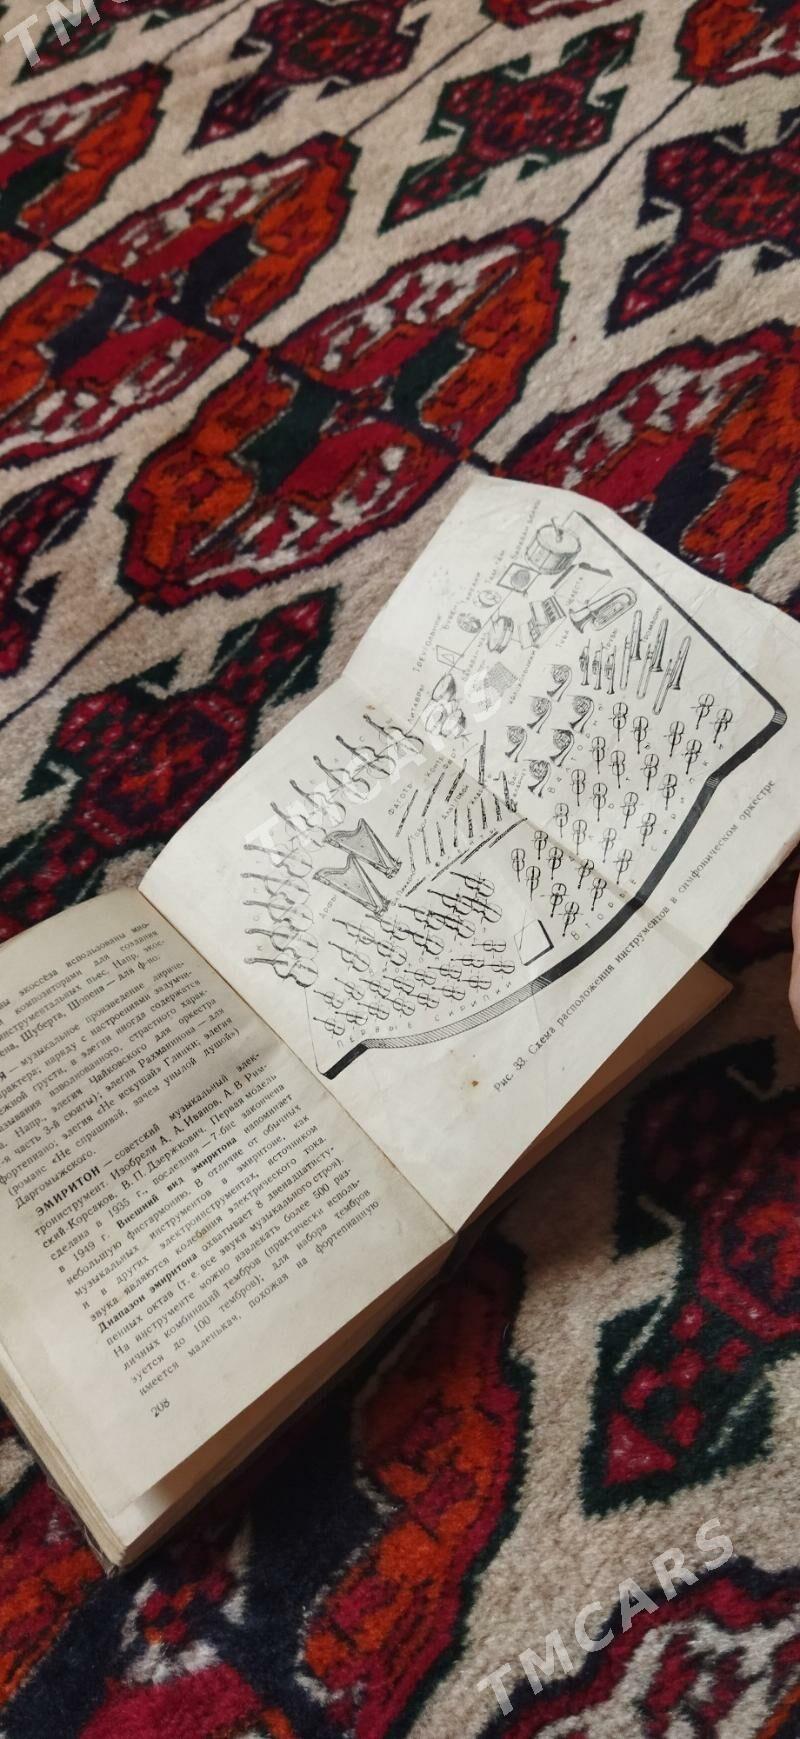 TMCARS
ны экоссеза использованы мно-
композиторами для создания
инструментальных пьес. Напр., экос-
Шуберта, Шопена — для ф-но.
— музыкальное произведение лириче-
характера; наряду с настроениями задумчи-
грусти, в элегии иногда содержатся
взволнованного, страстного харак-
Напр., элегия Чайковского для оркестра
-я часть 3-й сюиты); элегия Рахманинова — для
фортепиано; элегия «Не искушай» Глинки; элегия
(романс «Не спрашивай, зачем унылой душой»)
Даргомыжского.
ЭМИРИТОН — советский музыкальный элек-
троинструмент. Изобрели А. А. Иванов, А. В. Рим-
ский-Корсаков, В. П. Дзержкович. Первая модель
сделана в 1935 г., последняя — 7-бис закончена
в 1949 г. Внешний вид эмиритона напоминает
небольшую фисгармонию. В отличие от обычных
музыкальных инструментов в эмиритоне, как
и в других электроинструментах, источником
звука являются колебания электрического тока.
Диапазон эмиритона охватывает 8 двенадцатисту-
пенных октав (т. е. все звуки музыкального строя).
На инструменте можно извлекать более 500 раз-
личных комбинаций тембров (практически исполь-
зуется до 100 тембров); для набора тембров
имеется маленькая, похожая на фортепианную
208
Треугольник
Литавры
Туба
Тромбоны
Фаготы
Арфы
Первые скрипки
Вторые скрипки
Рис. 33. Схема расположения инструментов в симфоническом оркестре
TMCARS
TMCARS